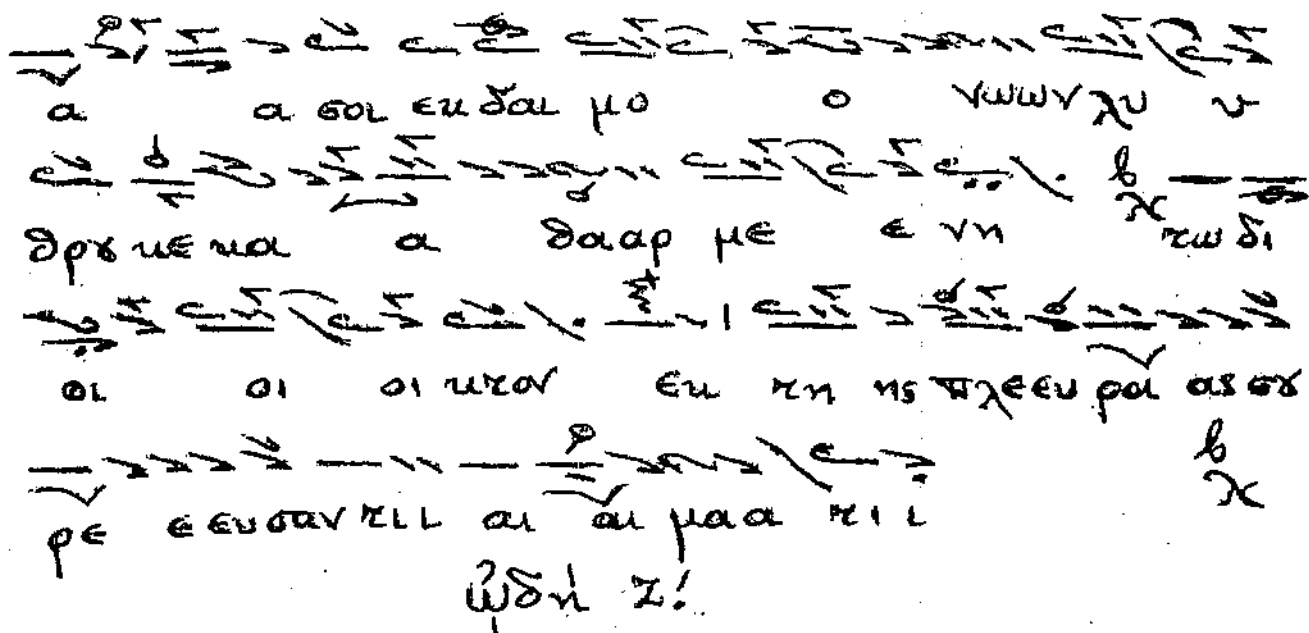 α α σοι εκ δαι μο ο νωων λυ υ
θρȣ κε κα α θααρ με ε νη τω δι
οι οι οι κτον εκ τη ης πλεευ ρα ας σȣ
ρε ε ευσαν τιι αι αι μαα τιι
ᾠδή ζ!